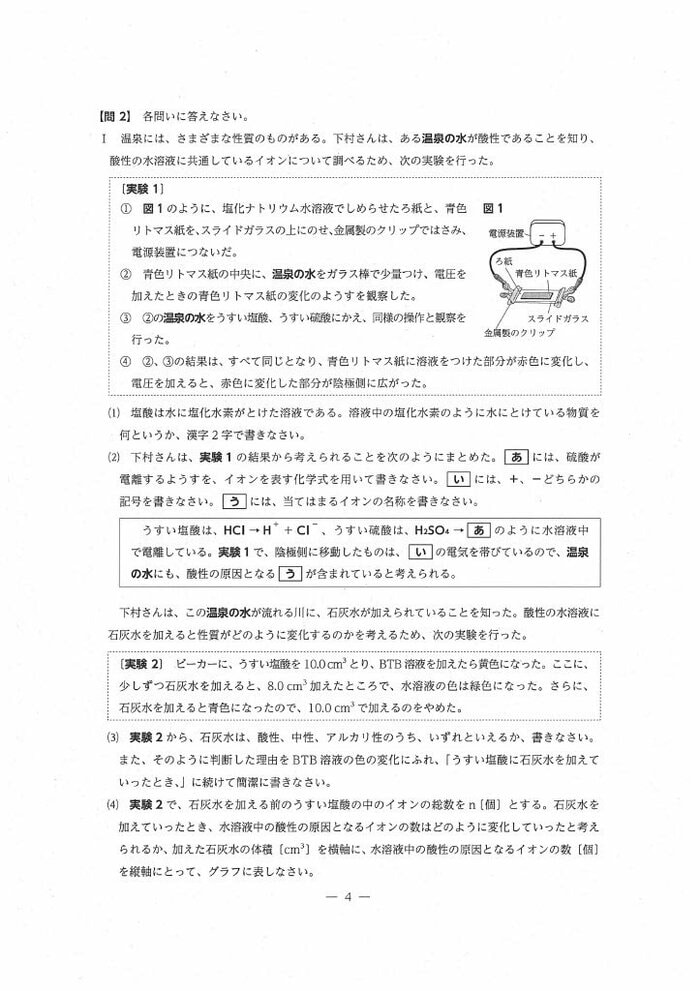 【問 2】 各問いに答えなさい。
Ⅰ 温泉には、さまざまな性質のものがある。下村さんは、ある温泉の水が酸性であることを知り、
酸性の水溶液に共通しているイオンについて調べるため、次の実験を行った。
〔実験 1〕
① 図 1 のように、塩化ナトリウム水溶液でしめらせたろ紙と、青色
リトマス紙を、スライドガラスの上にのせ、金属製のクリップではさみ、
電源装置につないだ。
② 青色リトマス紙の中央に、温泉の水をガラス棒で少量つけ、電圧を
加えたときの青色リトマス紙の変化のようすを観察した。
③ ②の温泉の水をうすい塩酸、うすい硫酸にかえ、同様の操作と観察を
行った。
④ ②、③の結果は、すべて同じとなり、青色リトマス紙に溶液をつけた部分が赤色に変化し、
電圧を加えると、赤色に変化した部分が陰極側に広がった。
図 1
電源装置
− +
ろ紙
青色リトマス紙
スライドガラス
金属製のクリップ
(1) 塩酸は水に塩化水素がとけた溶液である。溶液中の塩化水素のように水にとけている物質を
何というか、漢字 2 字で書きなさい。
(2) 下村さんは、実験 1 の結果から考えられることを次のようにまとめた。 あ には、硫酸が
電離するようすを、イオンを表す化学式を用いて書きなさい。 い には、+、−どちらかの
記号を書きなさい。 う には、当てはまるイオンの名称を書きなさい。
うすい塩酸は、HCl → H⁺ + Cl⁻、うすい硫酸は、H₂SO₄ → あ のように水溶液中
で電離している。実験 1 で、陰極側に移動したものは、 い の電気を帯びているので、温泉
の水にも、酸性の原因となる う が含まれていると考えられる。
下村さんは、この温泉の水が流れる川に、石灰水が加えられていることを知った。酸性の水溶液に
石灰水を加えると性質がどのように変化するのかを考えるため、次の実験を行った。
〔実験 2〕 ビーカーに、うすい塩酸を 10.0 cm³ とり、BTB 溶液を加えたら黄色になった。ここに、
少しずつ石灰水を加えると、8.0 cm³ 加えたところで、水溶液の色は緑色になった。さらに、
石灰水を加えると青色になったので、10.0 cm³ で加えるのをやめた。
(3) 実験 2 から、石灰水は、酸性、中性、アルカリ性のうち、いずれといえるか、書きなさい。
また、そのように判断した理由を BTB 溶液の色の変化にふれ、「うすい塩酸に石灰水を加えて
いったとき、」に続けて簡潔に書きなさい。
(4) 実験 2 で、石灰水を加える前のうすい塩酸の中のイオンの総数を n〔個〕とする。石灰水を
加えていったとき、水溶液中の酸性の原因となるイオンの数はどのように変化していったと考え
られるか、加えた石灰水の体積〔cm³〕を横軸に、水溶液中の酸性の原因となるイオンの数〔個〕
を縦軸にとって、グラフに表しなさい。
— 4 —